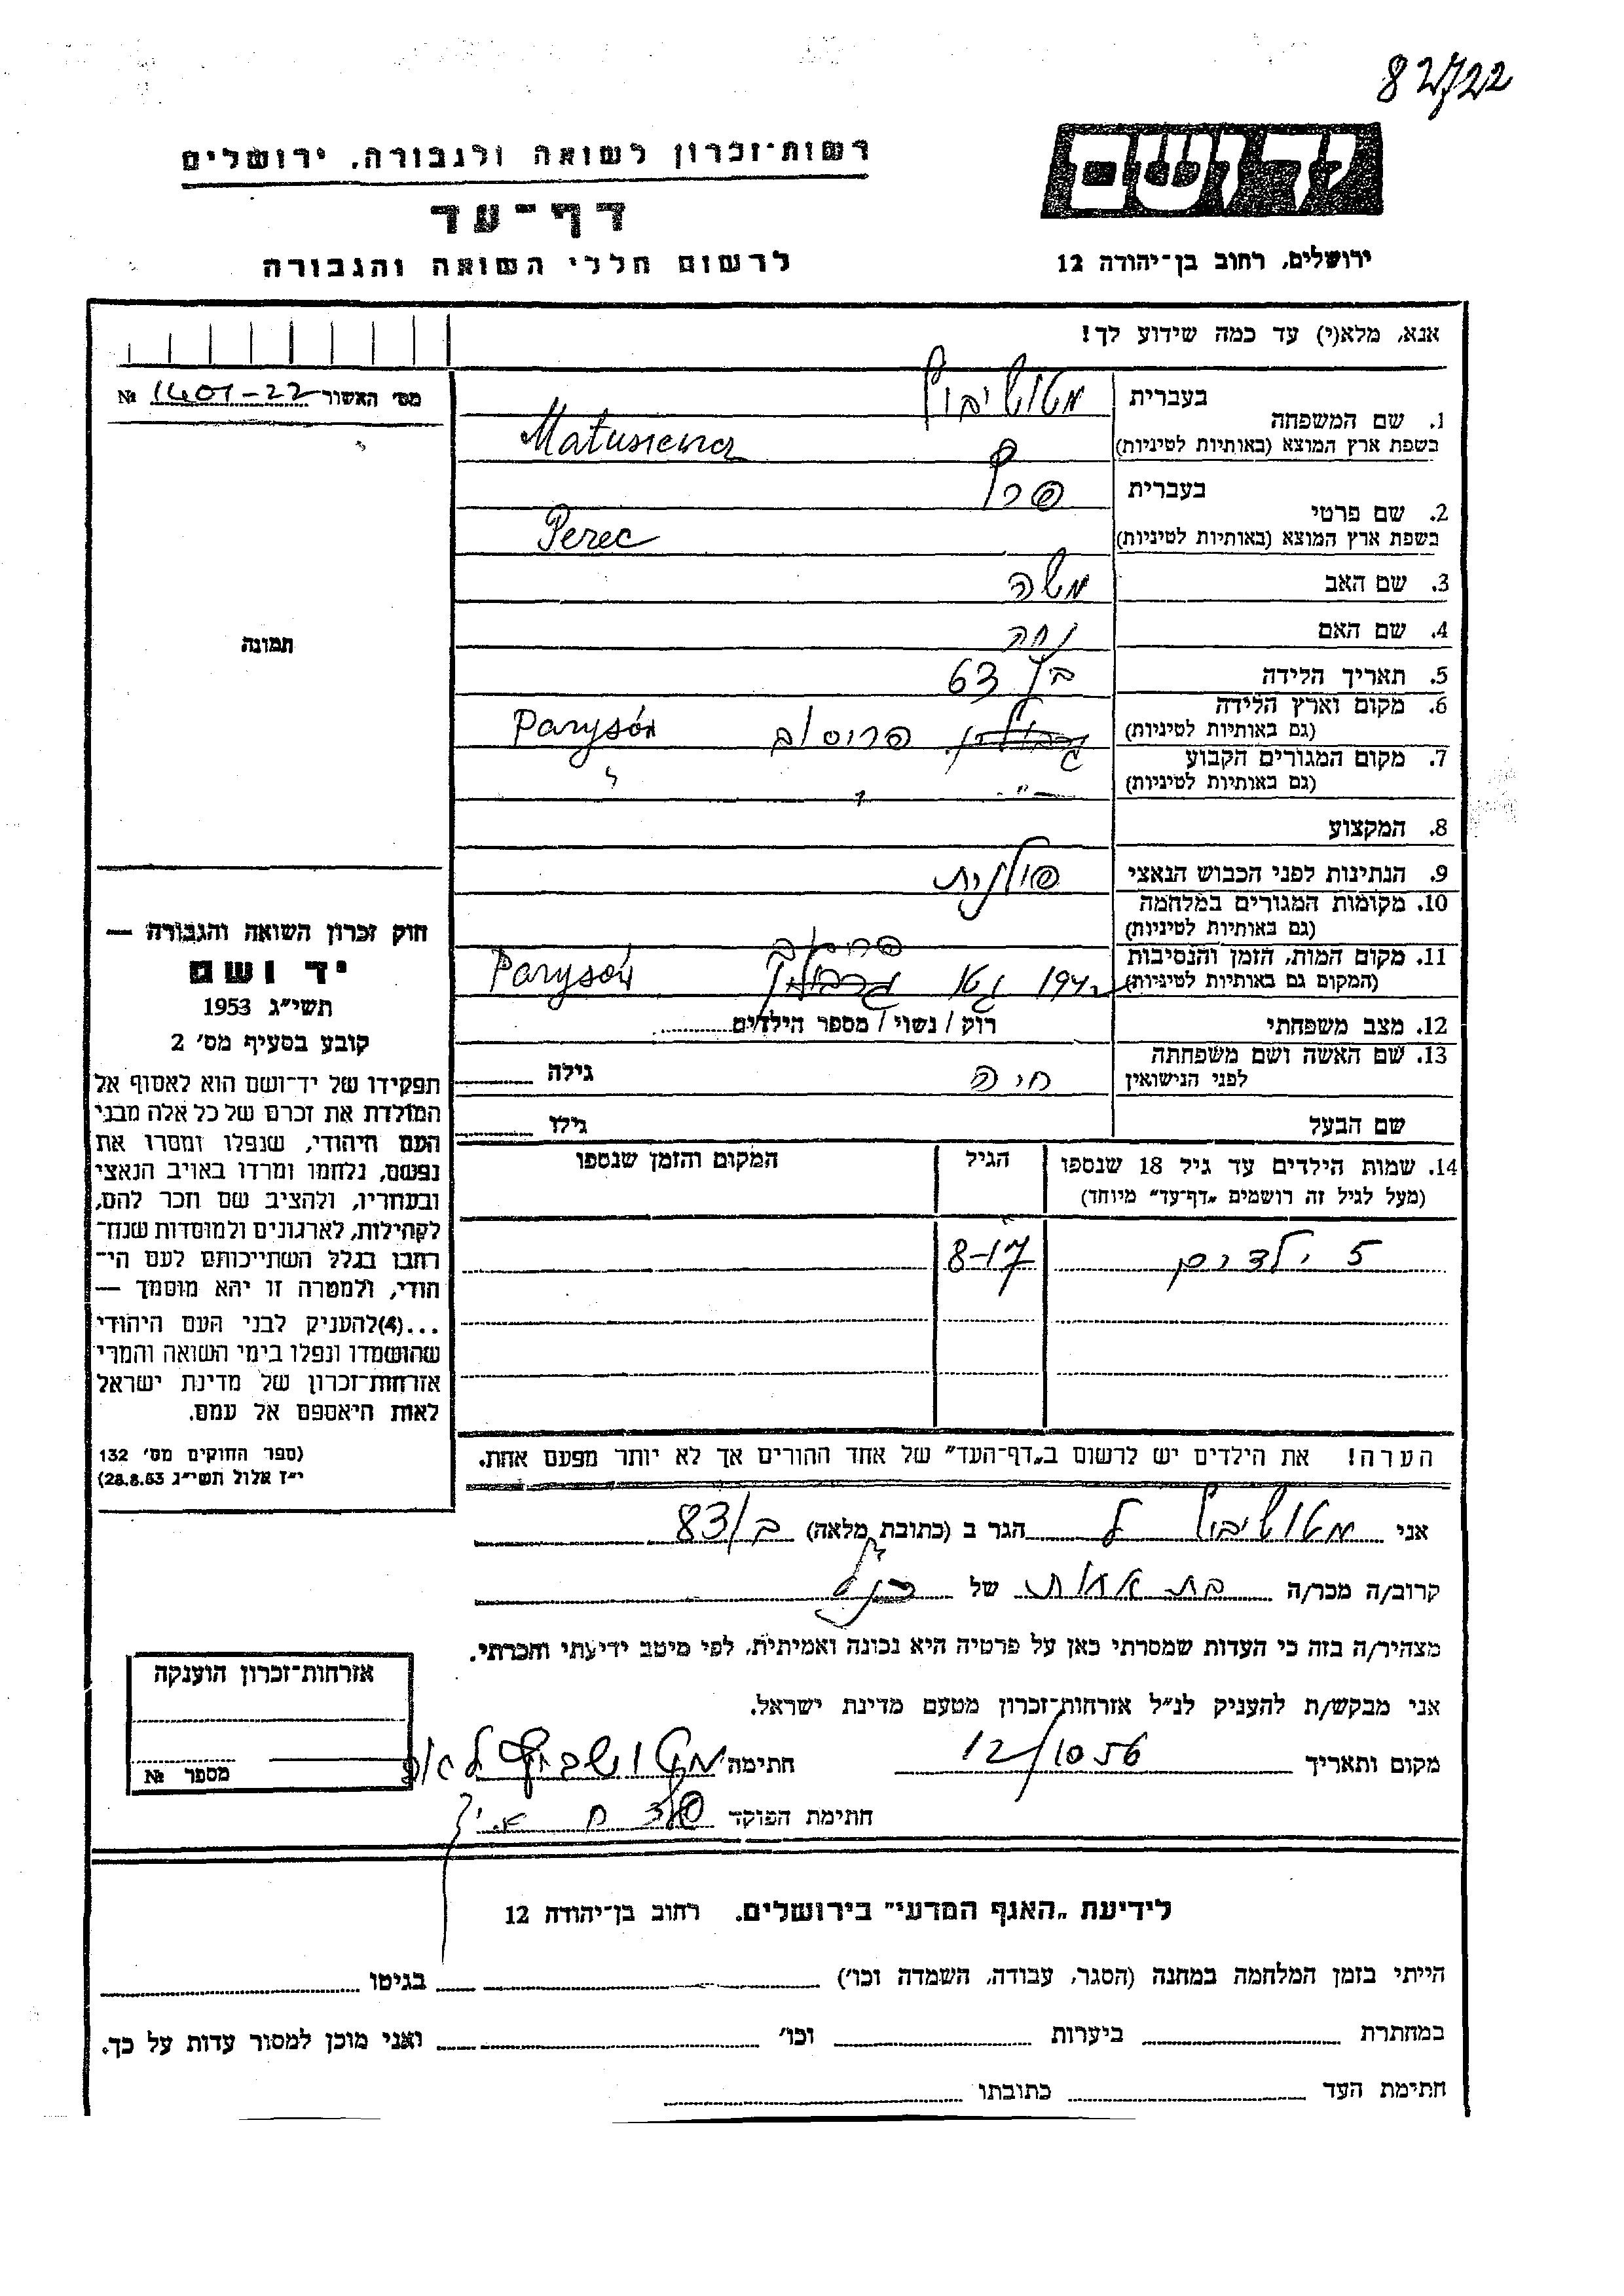 82/22
רשות־זכרון לשואה ולגבורה, ירושלים
דף־עד
לרשום חללי השואה והגבורה
ידושם
ירושלים, רחוב בן־יהודה 12
אנא, מלא(י) עד כמה שידוע לך!
מס' האשור 1401-22 №
תמונה
1. שם המשפחה בעברית
בשפת ארץ המוצא (באותיות לטיניות)
2. שם פרטי בעברית פרץ
בשפת ארץ המוצא (באותיות לטיניות) Perec
3. שם האב משה
4. שם האם
5. תאריך הלידה בן 63
6. מקום וארץ הלידה
(גם באותיות לטיניות) פריסוב Parysów
7. מקום המגורים הקבוע
(גם באותיות לטיניות) —"—
8. המקצוע
9. הנתינות לפני הכבוש הנאצי פולנית
10. מקומות המגורים במלחמה
(גם באותיות לטיניות)
11. מקום המות, הזמן והנסיבות פריסוב
(המקום גם באותיות לטיניות) גטו Parysów
12. מצב משפחתי רוק / נשוי / מספר הילדים
13. שם האשה ושם משפחתה
לפני הנישואין חיה גילה
שם הבעל גילו
14. שמות הילדים עד גיל 18 שנספו הגיל המקום והזמן שנספו
(מעל לגיל זה רושמים „דף־עד" מיוחד)
5 ילדים 8-17
הערה! את הילדים יש לרשום ב„דף־העד" של אחד ההורים אך לא יותר מפעם אחת.
חוק זכרון השואה והגבורה —
יד ושם
תשי"ג 1953
קובע בסעיף מס' 2
תפקידו של יד־ושם הוא לאסוף אל
המולדת את זכרם של כל אלה מבני
העם היהודי, שנפלו ומסרו את
נפשם, נלחמו ומרדו באויב הנאצי
ובעוזריו, ולהציב שם וזכר להם,
לקהילות, לארגונים ולמוסדות שנח־
רבו בגלל השתייכותם לעם הי־
הודי, ולמטרה זו יהא מוסמך —
...(4)להעניק לבני העם היהודי
שהושמדו ונפלו בימי השואה והמרי
אזרחות־זכרון של מדינת ישראל
לאות היאספם אל עמם.
(ספר החוקים מס' 132
י"ז אלול תשי"ג 28.8.53)
אני הגר ב (כתובת מלאה) ב/83
קרוב/ה מכר/ה בת אחות של
מצהיר/ה בזה כי העדות שמסרתי כאן על פרטיה היא נכונה ואמיתית, לפי מיטב ידיעתי והכרתי.
אני מבקש/ת להעניק לנ"ל אזרחות־זכרון מטעם מדינת ישראל.
מקום ותאריך 12/10 56 חתימה
חתימת הפוקד
אזרחות־זכרון הוענקה
מספר №
לידיעת „האגף המדעי" בירושלים. רחוב בן־יהודה 12
הייתי בזמן המלחמה במחנה (הסגר, עבודה, השמדה וכו') בגיטו
במחתרת ביערות וכו' ואני מוכן למסור עדות על כך.
חתימת העד כתובתו